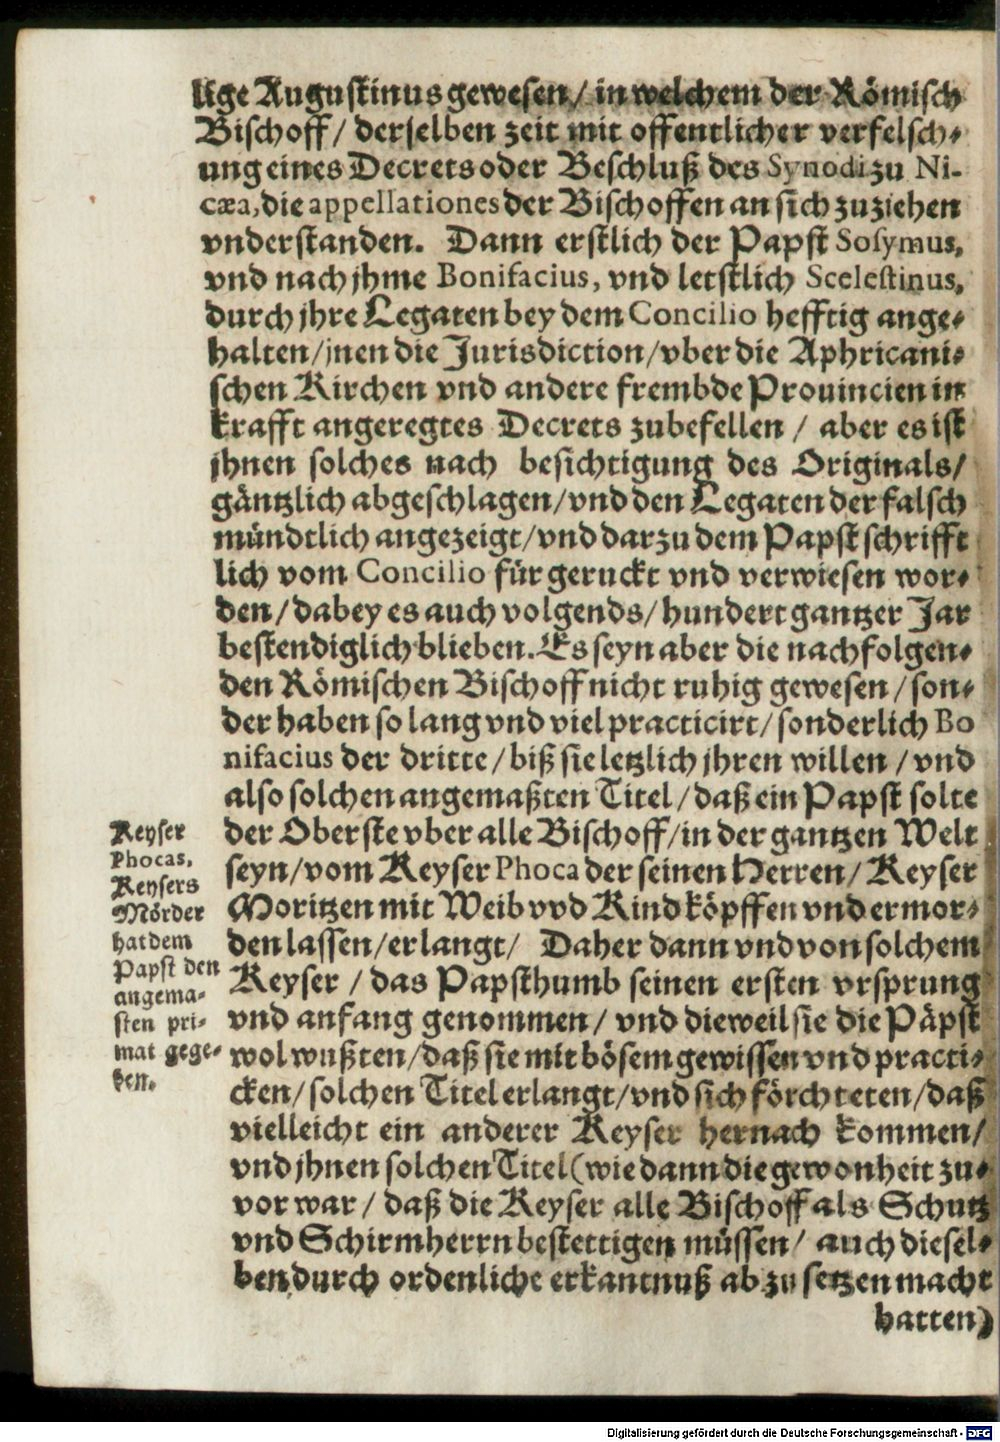 lige Augustinus gewesen / in welchem der Römisch
Bischoff / derselben zeit mit offentlicher verfelsch-
ung eines Decrets oder Beschluß des Synodi zu Ni-
cæa, die appellationes der Bischoffen an sich zuziehen
vnderstanden. Dann erstlich der Papst Sosymus,
vnd nach jhme Bonifacius, vnd letstlich Scelestinus,
durch jhre Legaten bey dem Concilio hefftig ange-
halten / jnen die Jurisdiction / vber die Aphricani-
schen Kirchen vnd andere frembde Prouincien in
krafft angeregtes Decrets zubefellen / aber es ist
jhnen solches nach besichtigung des Originals /
gäntzlich abgeschlagen / vnd den Legaten der falsch
mündtlich angezeigt / vnd darzu dem Papst schrifft
lich vom Concilio für geruckt vnd verwiesen wor-
den / dabey es auch volgends / hundert gantzer Jar
bestendiglich blieben. Es seyn aber die nachfolgen-
den Römischen Bischoff nicht ruhig gewesen / son-
der haben so lang vnd viel practicirt / sonderlich Bo
nifacius der dritte / biß sie letzlich jhren willen / vnd
also solchen angemaßten Titel / daß ein Papst solte
der Oberste vber alle Bischoff / in der gantzen Welt
seyn / vom Keyser Phoca der seinen Herren / Keyser
Moritzen mit Weib vvd Kind köpffen vnd ermor-
den lassen / erlangt / Daher dann vnd von solchem
Keyser / das Papsthumb seinen ersten vrsprung
vnd anfang genommen / vnd dieweil sie die Päpst
wol wußten / daß sie mit bösem gewissen vnd practi-
cken / solchen Titel erlangt / vnd sich förchteten / daß
vielleicht ein anderer Keyser hernach kommen /
vnd jhnen solchen Titel (wie dann die gewonheit zu-
vor war / daß die Keyser alle Bischoff als Schutz
vnd Schirmherrn bestettigen müssen / auch diesel-
ben durch ordenliche erkantnuß abzusetzen macht
hatten)
Keyser
Phocas,
Keysers
Mörder
hat dem
Papst den
angema-
sten pri-
mat gege-
ben.
Digitalisierung gefördert durch die Deutsche Forschungsgemeinschaft - DFG